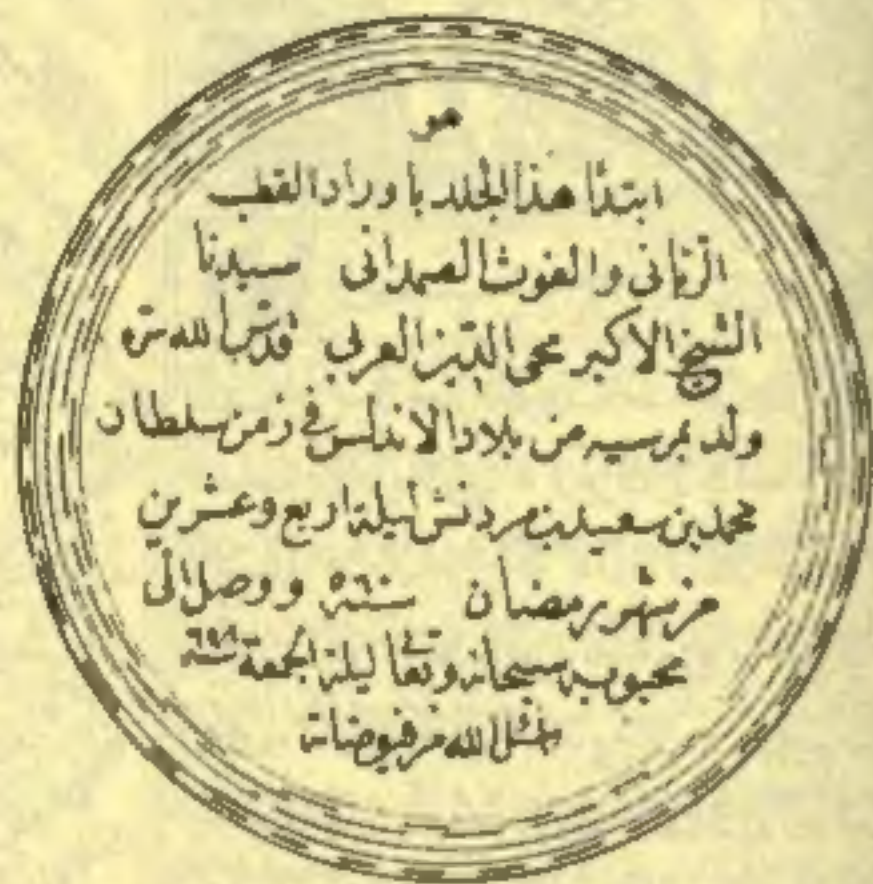 هو
ابتدأ هذا الجلد باوراد القطب
الربانى والغوث الصمدانى سيدنا
الشيخ الاكبر محى الدين العربى قدس الله سره
ولد بمرسيه من بلاد الاندلس فى زمن سلطان
محمد بن سعيد بن مردنش ليلة اربع وعشرين
من شهر رمضان سنة ٥٦٠ ووصل الى
محبوبه سبحانه وتعا ليلة الجمعة سنة
الله من فيوضاته